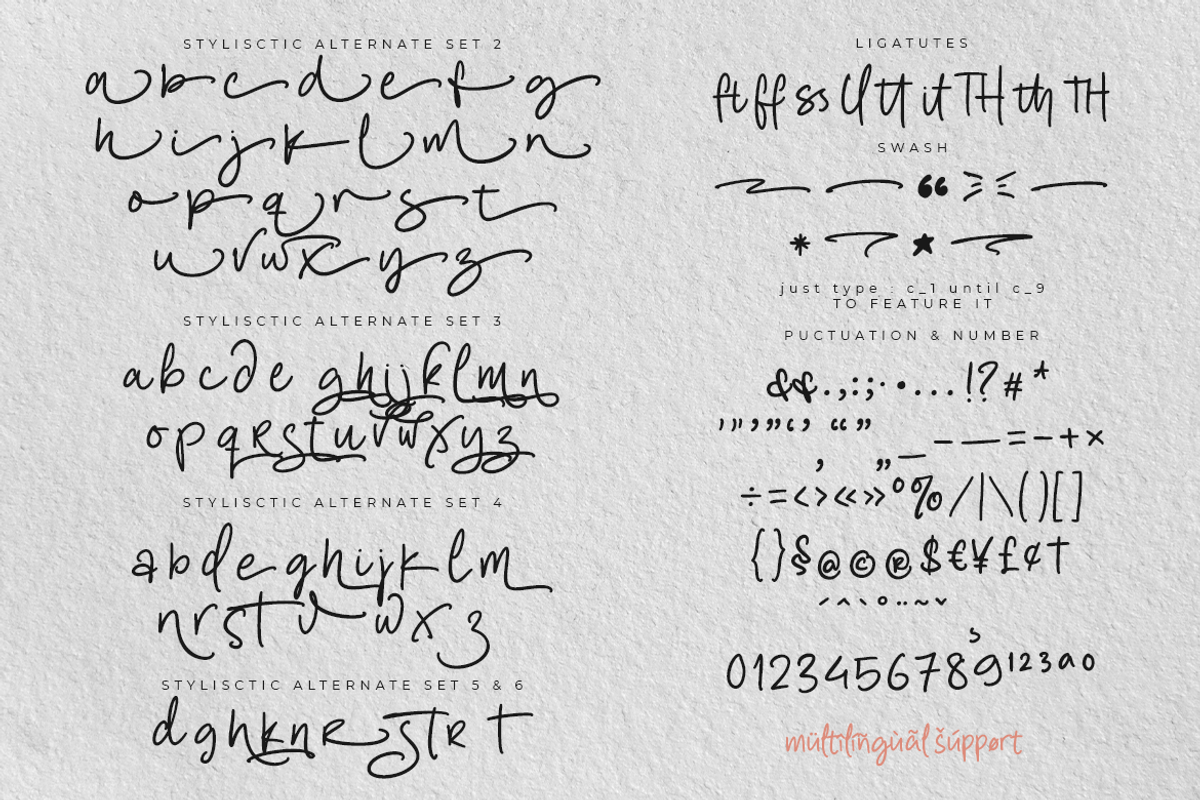 STYLISCTIC ALTERNATE SET 2
a b c d e f g
h i j k l m n
o p q r s t
u v w x y z
STYLISCTIC ALTERNATE SET 3
a b c d e g h i j k l m n
o p q R s t u v w x y z
STYLISCTIC ALTERNATE SET 4
a b d e g h i j k l m
n r s t v w x z
STYLISCTIC ALTERNATE SET 5 & 6
d g h k n R S T R T
LIGATUTES
ft ff ss cl tt it TH th TH
SWASH
“
* ★
just type : c_1 until c_9
TO FEATURE IT
PUCTUATION & NUMBER
&&.,:;·•...!?#*
'"’”‘’ “”
‚ „_ – — = - + ×
÷=<>«»°%/|\()[]
{}§@©®$€¥£¢†
´^`°¨~ˇ
0123456789¹²³ªº
múltilíngùãl šúppørt